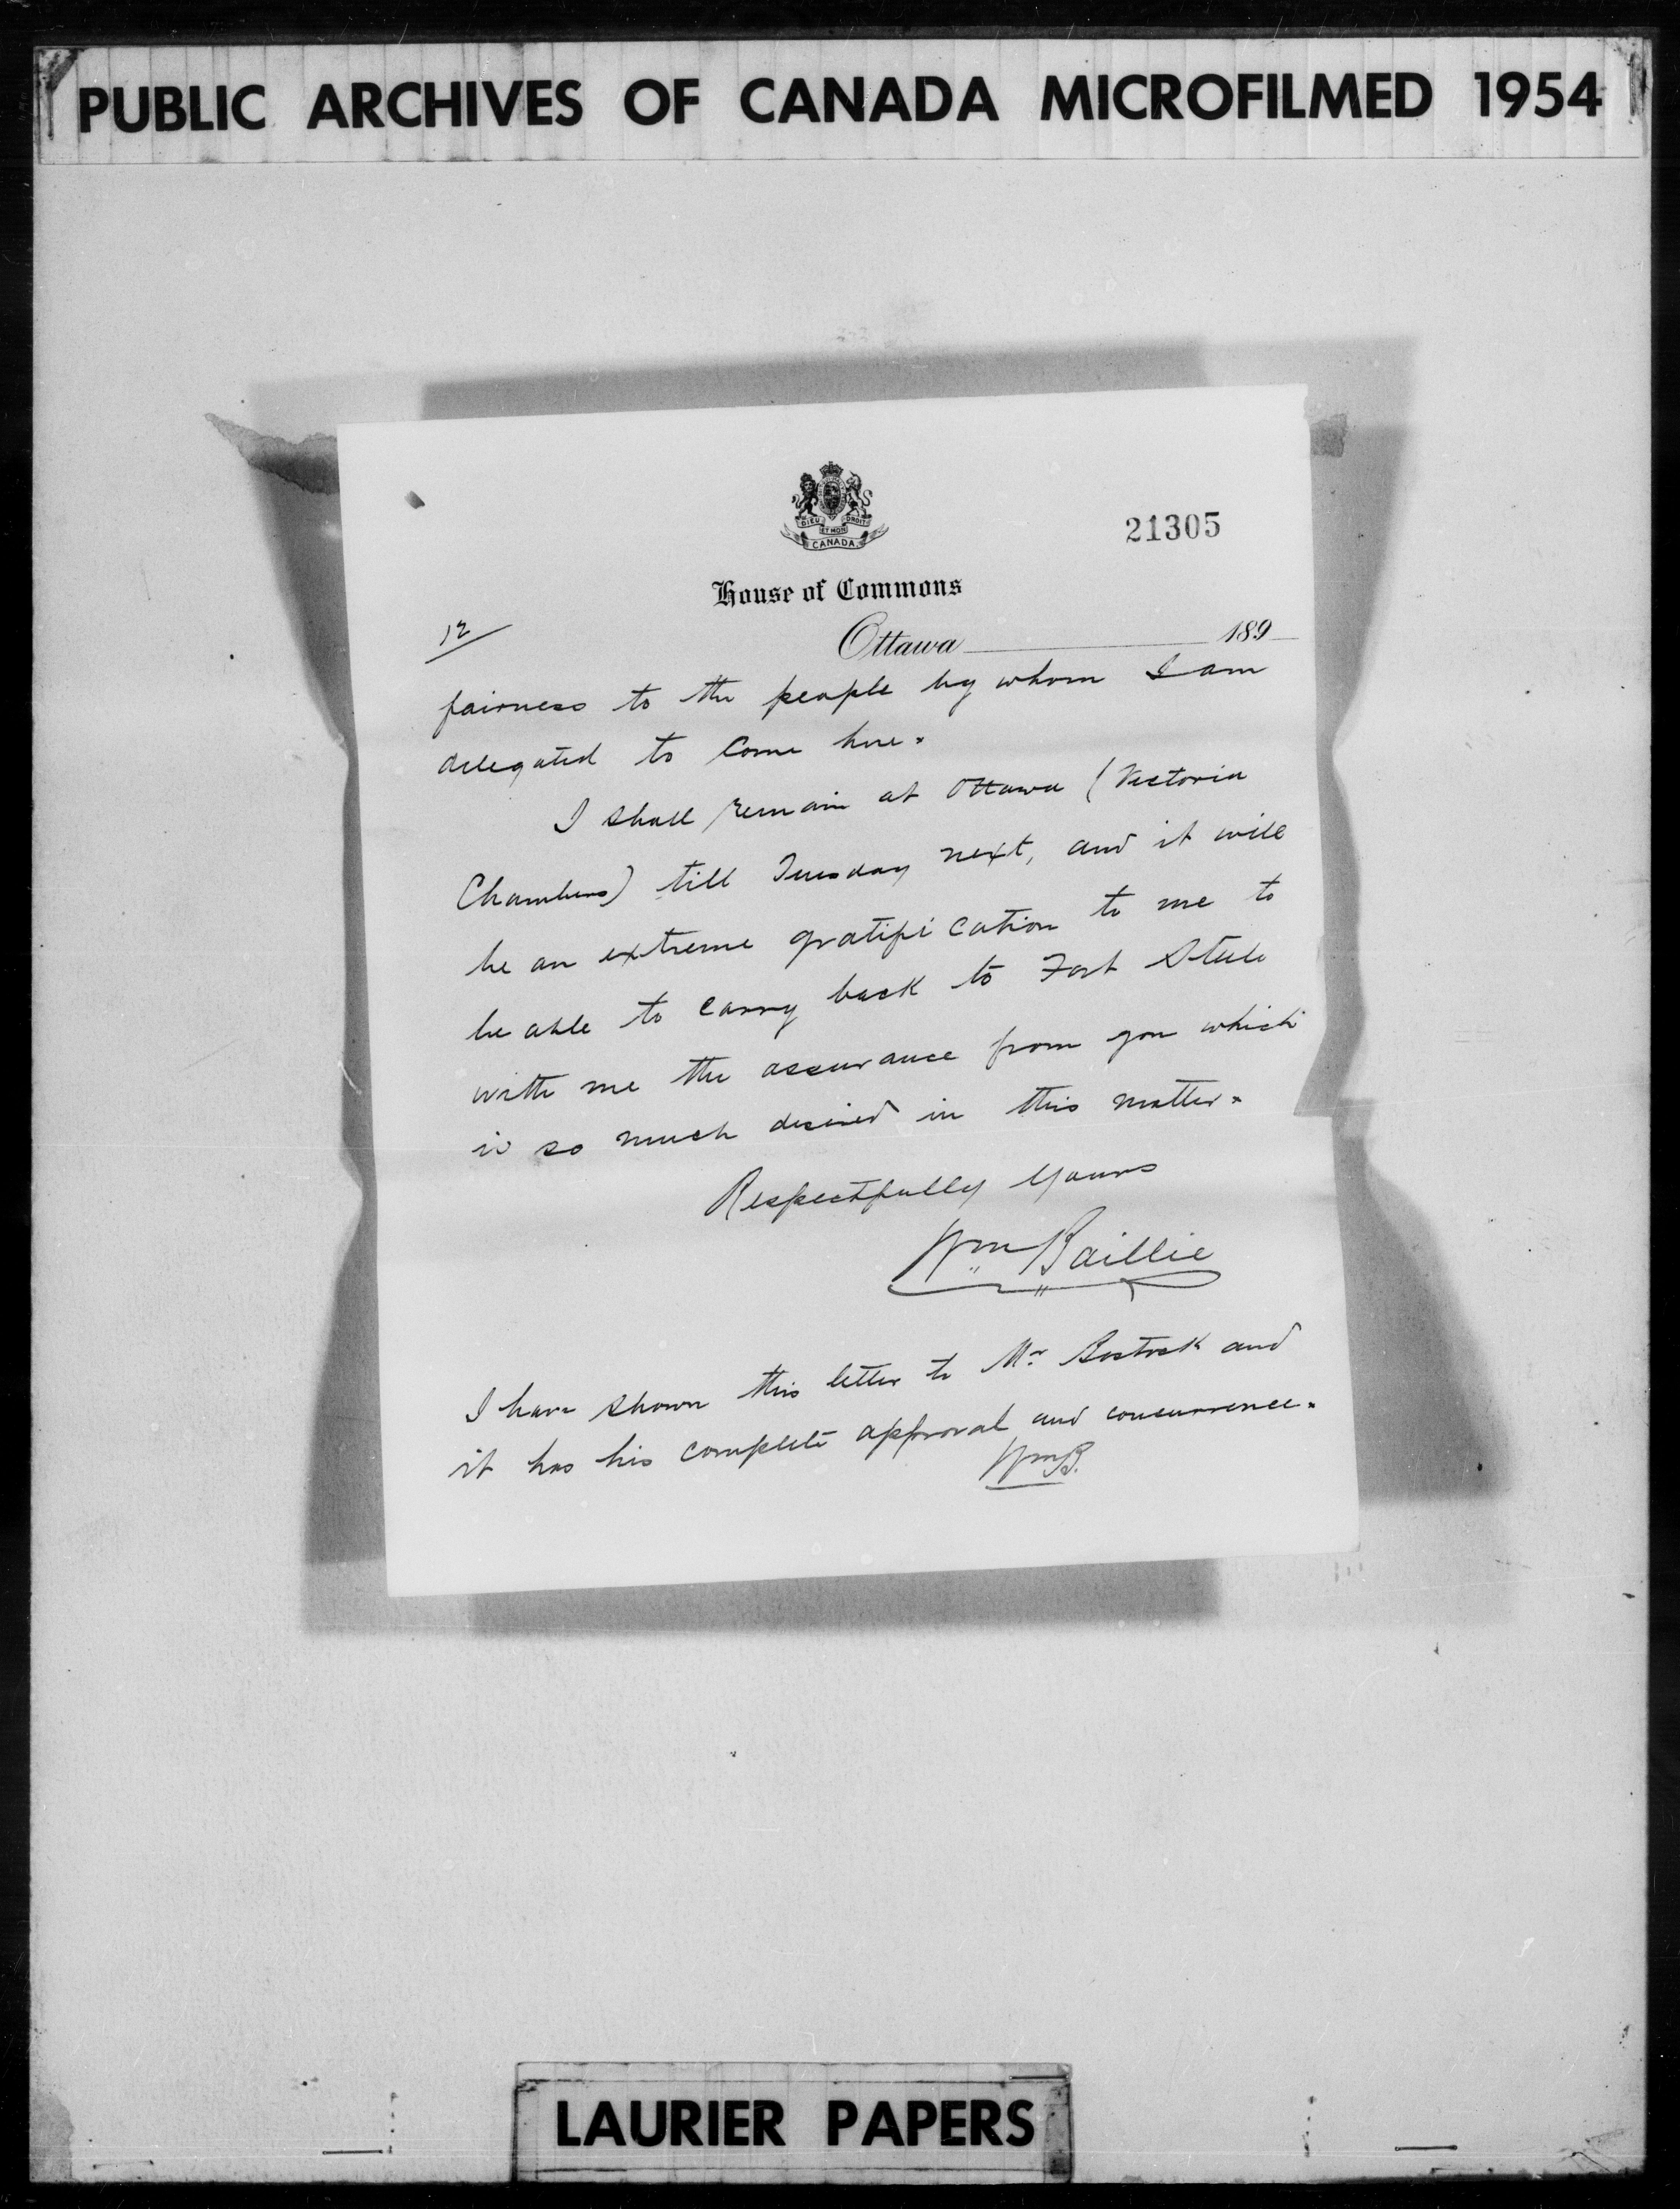 PUBLIC ARCHIVES OF CANADA MICROFILMED 1954
DIEU ET MON DROIT
CANADA
21305
House of Commons
12
Ottawa 189
fairness to the people by whom I am
delegated to come here.
I shall remain at Ottawa (Victoria
Chambers) till Tuesday next, and it will
be an extreme gratification to me to
be able to carry back to Fort Steele
with me the assurance from you which
is so much desired in this matter.
Respectfully Yours
Wm Baillie
I have shown this letter to Mr Bostock and
it has his complete approval and concurrence.
WmB.
LAURIER PAPERS